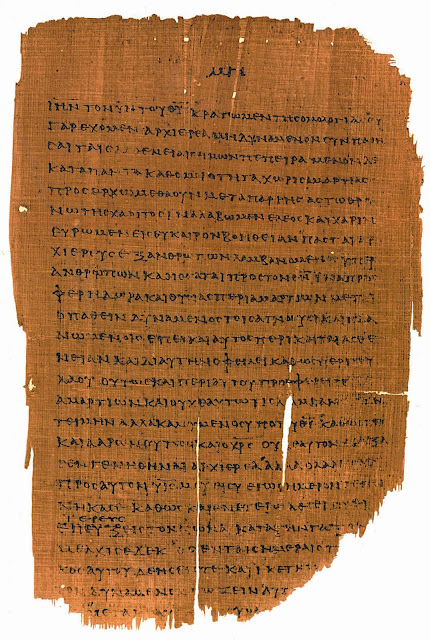 ΙΗΝ ΤΟΝ ΥΝ ΤΟΥ ΘΥ ΚΡΑΤΩΜΕΝ ΤΗΣ ΟΜΟΛΟΓΙΑ ΟΥ
ΓΑΡ ΕΧΟΜΕΝ ΑΡΧΙΕΡΕΑ ΜΗ ΔΥΝΑΜΕΝΟΝ ΣΥΝΠΑΘΗ
ΣΑΙ ΤΑΙΣ ΗΜΩΝ ΠΕΠΕΙΡΑΜΕΝΟΝ ΔΕ
ΚΑΤΑ ΠΑΝΤΑ ΚΑΘ ΟΜΟΙΟΤΗΤΑ ΧΩΡΙΣ ΑΜΑΡΤΙΑΣ
ΠΡΟΣΕΡΧΩΜΕΘΑ ΟΥΝ ΜΕΤΑ ΠΑΡΡΗΣΙΑΣ ΤΩ ΘΡΟ
ΝΩ ΤΗΣ ΧΑΡΙΤΟΣ ΙΝΑ ΛΑΒΩΜΕΝ ΕΛΕΟΣ ΚΑΙ ΧΑΡΙΝ
ΕΥΡΩΜΕΝ ΕΙΣ ΕΥΚΑΙΡΟΝ ΒΟΗΘΕΙΑΝ ΠΑΣ ΓΑΡ ΑΡ
ΧΙΕΡΕΥΣ ΕΞ ΑΝΘΡΩΠΩΝ ΛΑΜΒΑΝΟΜΕΝΟΣ ΥΠΕΡ
ΑΝΘΡΩΠΩΝ ΚΑΘΙΣΤΑΤΑΙ ΠΡΟΣ ΤΟΝ ΘΝ ΙΝΑ ΠΡΟΣ
ΦΕΡΗ ΔΩΡΑ ΚΑΙ ΘΥΣΙΑΣ ΠΕΡΙ ΑΜΑΡΤΙΩΝ ΜΕΤΡΙ
ΟΠΑΘΕΙΝ ΔΥΝΑΜΕΝΟΣ ΤΟΙΣ ΑΓΝΟΟΥΣΙ ΚΑΙ ΠΛΑ
ΝΩΜΕΝΟΙΣ ΕΠΕΙ ΚΑΙ ΑΥΤΟΣ ΠΕΡΙΚΕΙΤΑΙ ΑΣΘΕ
ΝΕΙΑΝ ΚΑΙ ΔΙ ΑΥΤΗΝ ΟΦΕΙΛΕΙ ΚΑΘΩΣ ΠΕΡΙ ΤΟΥ
ΛΑΟΥ ΟΥΤΩΣ ΚΑΙ ΠΕΡΙ ΑΥΤΟΥ ΠΡΟΣΦΕΡΕΙΝ
ΑΜΑΡΤΙΩΝ ΚΑΙ ΟΥΧ ΕΑΥΤΩ ΤΙΣ ΛΑΜΒΑΝΕΙ ΤΗΝ
ΤΕΙΜΗΝ ΑΛΛΑ ΚΑΛΟΥΜΕΝΟΣ ΥΠΟ ΤΟΥ ΘΥ
ΚΑΙ ΑΑΡΩΝ ΟΥΤΩΣ ΚΑΙ Ο ΧΡΣ ΟΥΧ ΕΑΥΤΟΝ ΕΔΟΞΑ
ΣΕΝ ΓΕΝΗΘΗΝΑΙ ΑΡΧΙΕΡΕΑ ΑΛΛ Ο ΛΑΛΗΣΑΣ
ΠΡΟΣ ΑΥΤΟΝ ΥΣ ΜΟΥ ΕΙ ΣΥ ΕΓΩ ΣΗΜΕΡΟΝ ΓΕΓΕΝ
ΝΗΚΑ ΣΕ ΚΑΘΩΣ ΚΑΙ ΕΝ ΕΤΕΡΩ
ΙΕΡΕΥΣ
ΕΙΣ ΤΟΝ ΑΙΩΝΑ ΚΑΤΑ ΤΗΝ
ΜΕΛΧΙΣΕΔΕΚ ΟΣ ΕΝ ΤΑΙΣ ΗΜΕΡΑΙΣ
ΔΕΗΣΕΙΣ ΤΕ ΚΑΙ ΙΚΕΤΗΡΙ
ΔΥΝΑΜΕΝΟΝ ΣΩΖΕΙΝ ΑΥΤΟ